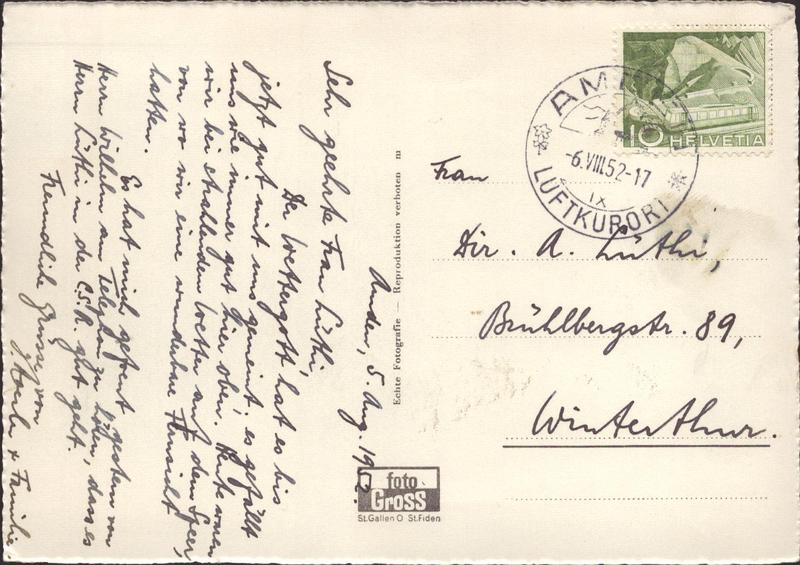 Amden, 5. Aug. 19
Sehr geehrte Frau Lüthi,
Der Wettergott hat es bis
jetzt gut mit uns gemeint; es gefällt
uns wie immer gut hier oben. Heute waren
wir bei strahlendem Wetter auf dem Speer,
von wo wir eine wunderbare Fernsicht
hatten.
Es hat mich gefreut gestern von
Herrn Wilhelm am Telephon zu hören, dass es
Herrn Lüthi in der C.S.R. gut geht.
Freundliche Grüsse von
& Familie
Echte Fotografie — Reproduktion verboten m
foto
Gross
St.Gallen O St.Fiden
10 HELVETIA
AM
-6.VIII.52-17
IX
LUFTKURORT
Frau
Dir. A. Lüthi,
Brühlbergstr. 89,
Winterthur.